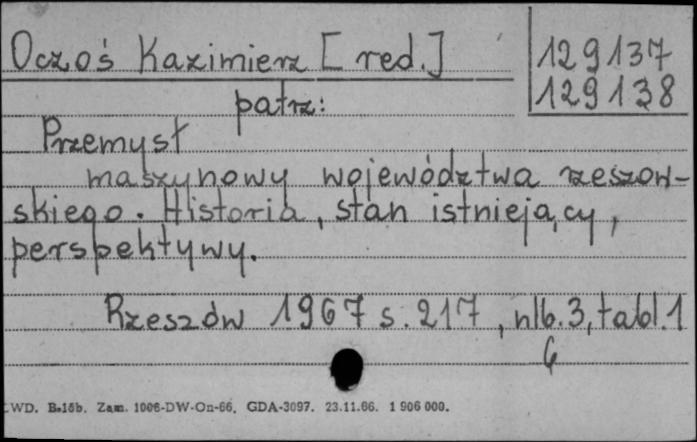 Oczoś Kazimierz [red.]
129137
129138
patrz:
Przemysł
maszynowy województwa rzeszow-
skiego. Historia, stan istniejący,
perspektywy.
Rzeszów 1967 s. 217, nlb. 3, tabl. 1
6
LWD. B-15b. Zam. 1006-DW-On-66. GDA-3097. 23.11.66. 1 906 000.